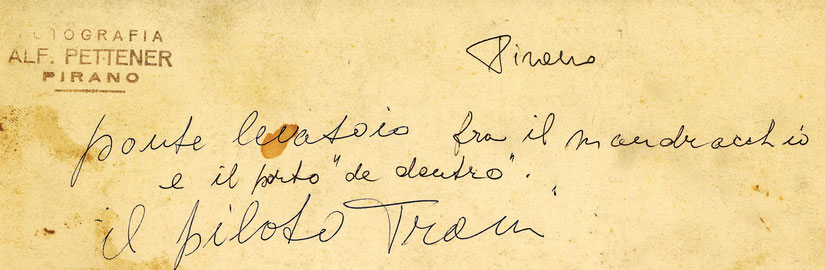 FOTOGRAFIA
ALF. PETTENER
PIRANO
Pirano
ponte levatoio fra il mandracchio
e il porto "de dentro".
il piloto Tram"